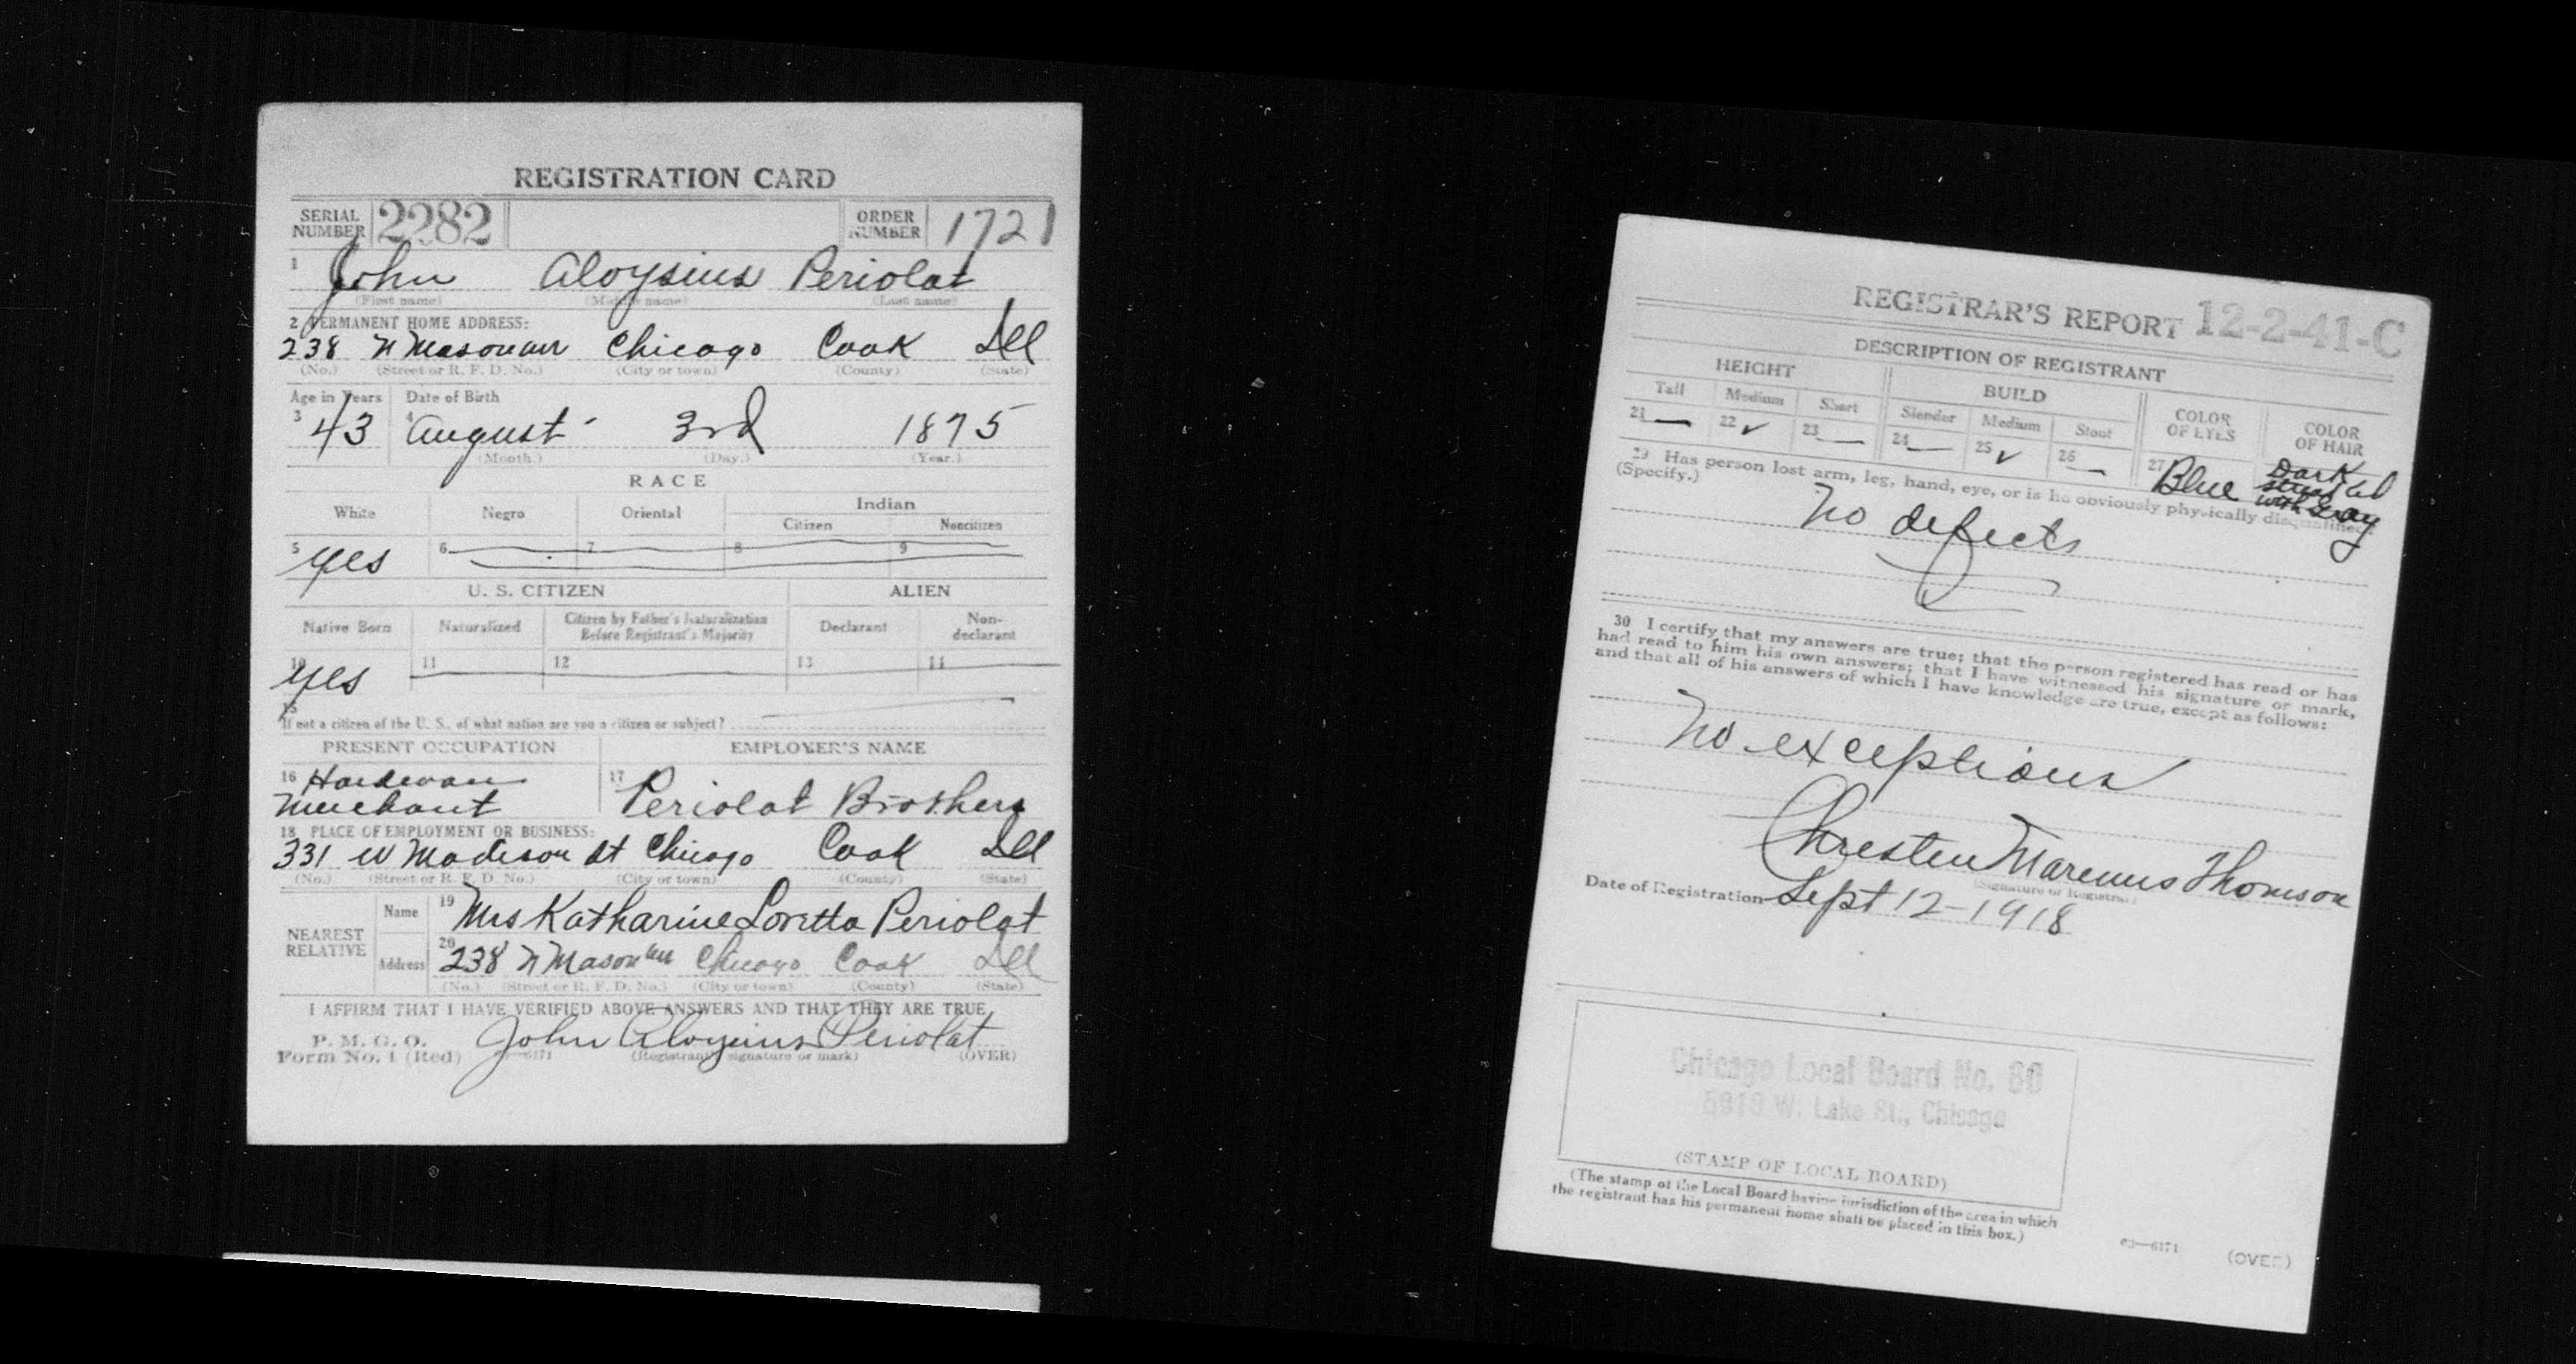 REGISTRATION CARD
SERIAL NUMBER 2282 ORDER NUMBER 1721
1 John Aloysius Periolat
(First name) (Middle name) (Last name)
2 PERMANENT HOME ADDRESS:
238 N Mason ave Chicago Cook Ill
(No.) (Street or R. F. D. No.) (City or town) (County) (State)
Age in Years Date of Birth
3 43 4 August 3rd 1875
(Month.) (Day.) (Year.)
RACE
White Negro Oriental Indian
Citizen Noncitizen
5 yes 6 7 8 9
U. S. CITIZEN ALIEN
Native Born Naturalized Citizen by Father's Naturalization Before Registrant's Majority Declarant Non-declarant
10 yes 11 12 13 14
15
If not a citizen of the U. S., of what nation are you a citizen or subject?
PRESENT OCCUPATION EMPLOYER'S NAME
16 Hardware Merchant 17 Periolat Brothers
18 PLACE OF EMPLOYMENT OR BUSINESS:
331 W Madison St Chicago Cook Ill
(No.) (Street or R. F. D. No.) (City or town) (County) (State)
NEAREST RELATIVE
Name 19 Mrs Katharine Loretta Periolat
Address 20 238 N Mason ave Chicago Cook Ill
(No.) (Street or R. F. D. No.) (City or town) (County) (State)
I AFFIRM THAT I HAVE VERIFIED ABOVE ANSWERS AND THAT THEY ARE TRUE
P. M. G. O.
Form No. 1 (Red) John Aloysius Periolat
(Registrant's signature or mark) (OVER)
REGISTRAR'S REPORT 12-2-41-C
DESCRIPTION OF REGISTRANT
HEIGHT BUILD COLOR OF EYES COLOR OF HAIR
Tall Medium Short Slender Medium Stout
21 22 ✓ 23 24 25 ✓ 26 27 Blue Dark streaked with Gray
29 Has person lost arm, leg, hand, eye, or is he obviously physically disqualified?
(Specify.)
No defects
30 I certify that my answers are true; that the person registered has read or has
had read to him his own answers; that I have witnessed his signature or mark,
and that all of his answers of which I have knowledge are true, except as follows:
No exceptions
Chresten Marenus Thomson
(Signature of Registrar)
Date of Registration Sept 12-1918
Chicago Local Board No. 80
W. Lake St., Chicago
(STAMP OF LOCAL BOARD)
(The stamp of the Local Board having jurisdiction of the area in which
the registrant has his permanent home shall be placed in this box.)
03—6171 (OVER)